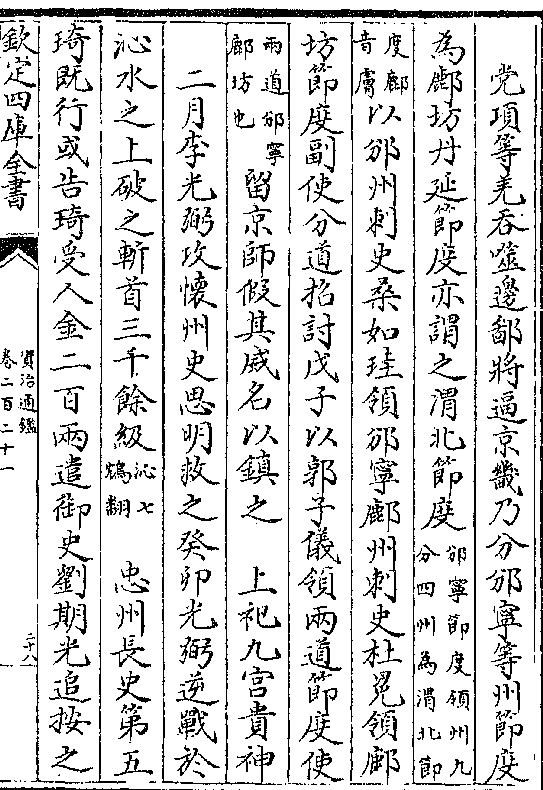 党項等羌吞噬邊鄙將逼京畿乃分邠寧等州節度
為鄜坊丹延節度亦謂之渭北節度邠寧節度領州九分四州為渭北節
度鄜音膚以邠州刺史桑如珪領邠寧鄜州刺史杜冕領鄜
坊節度副使分道招討戊子以郭子儀領兩道節度使
兩道邠寧鄜坊也留京師假其威名以鎮之　上祀九宫貴神
二月李光弼攻懷州史思明救之癸卯光弼逆戰於
沁水之上破之斬首三千餘級沁七鴆翻　忠州長史第五
琦既行或告琦受人金二百兩遣御史劉期光追按之
欽定四庫全書
資治通鑑
卷二百二十一
二十八